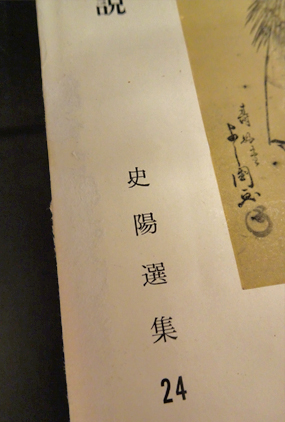 説
史陽選集
24